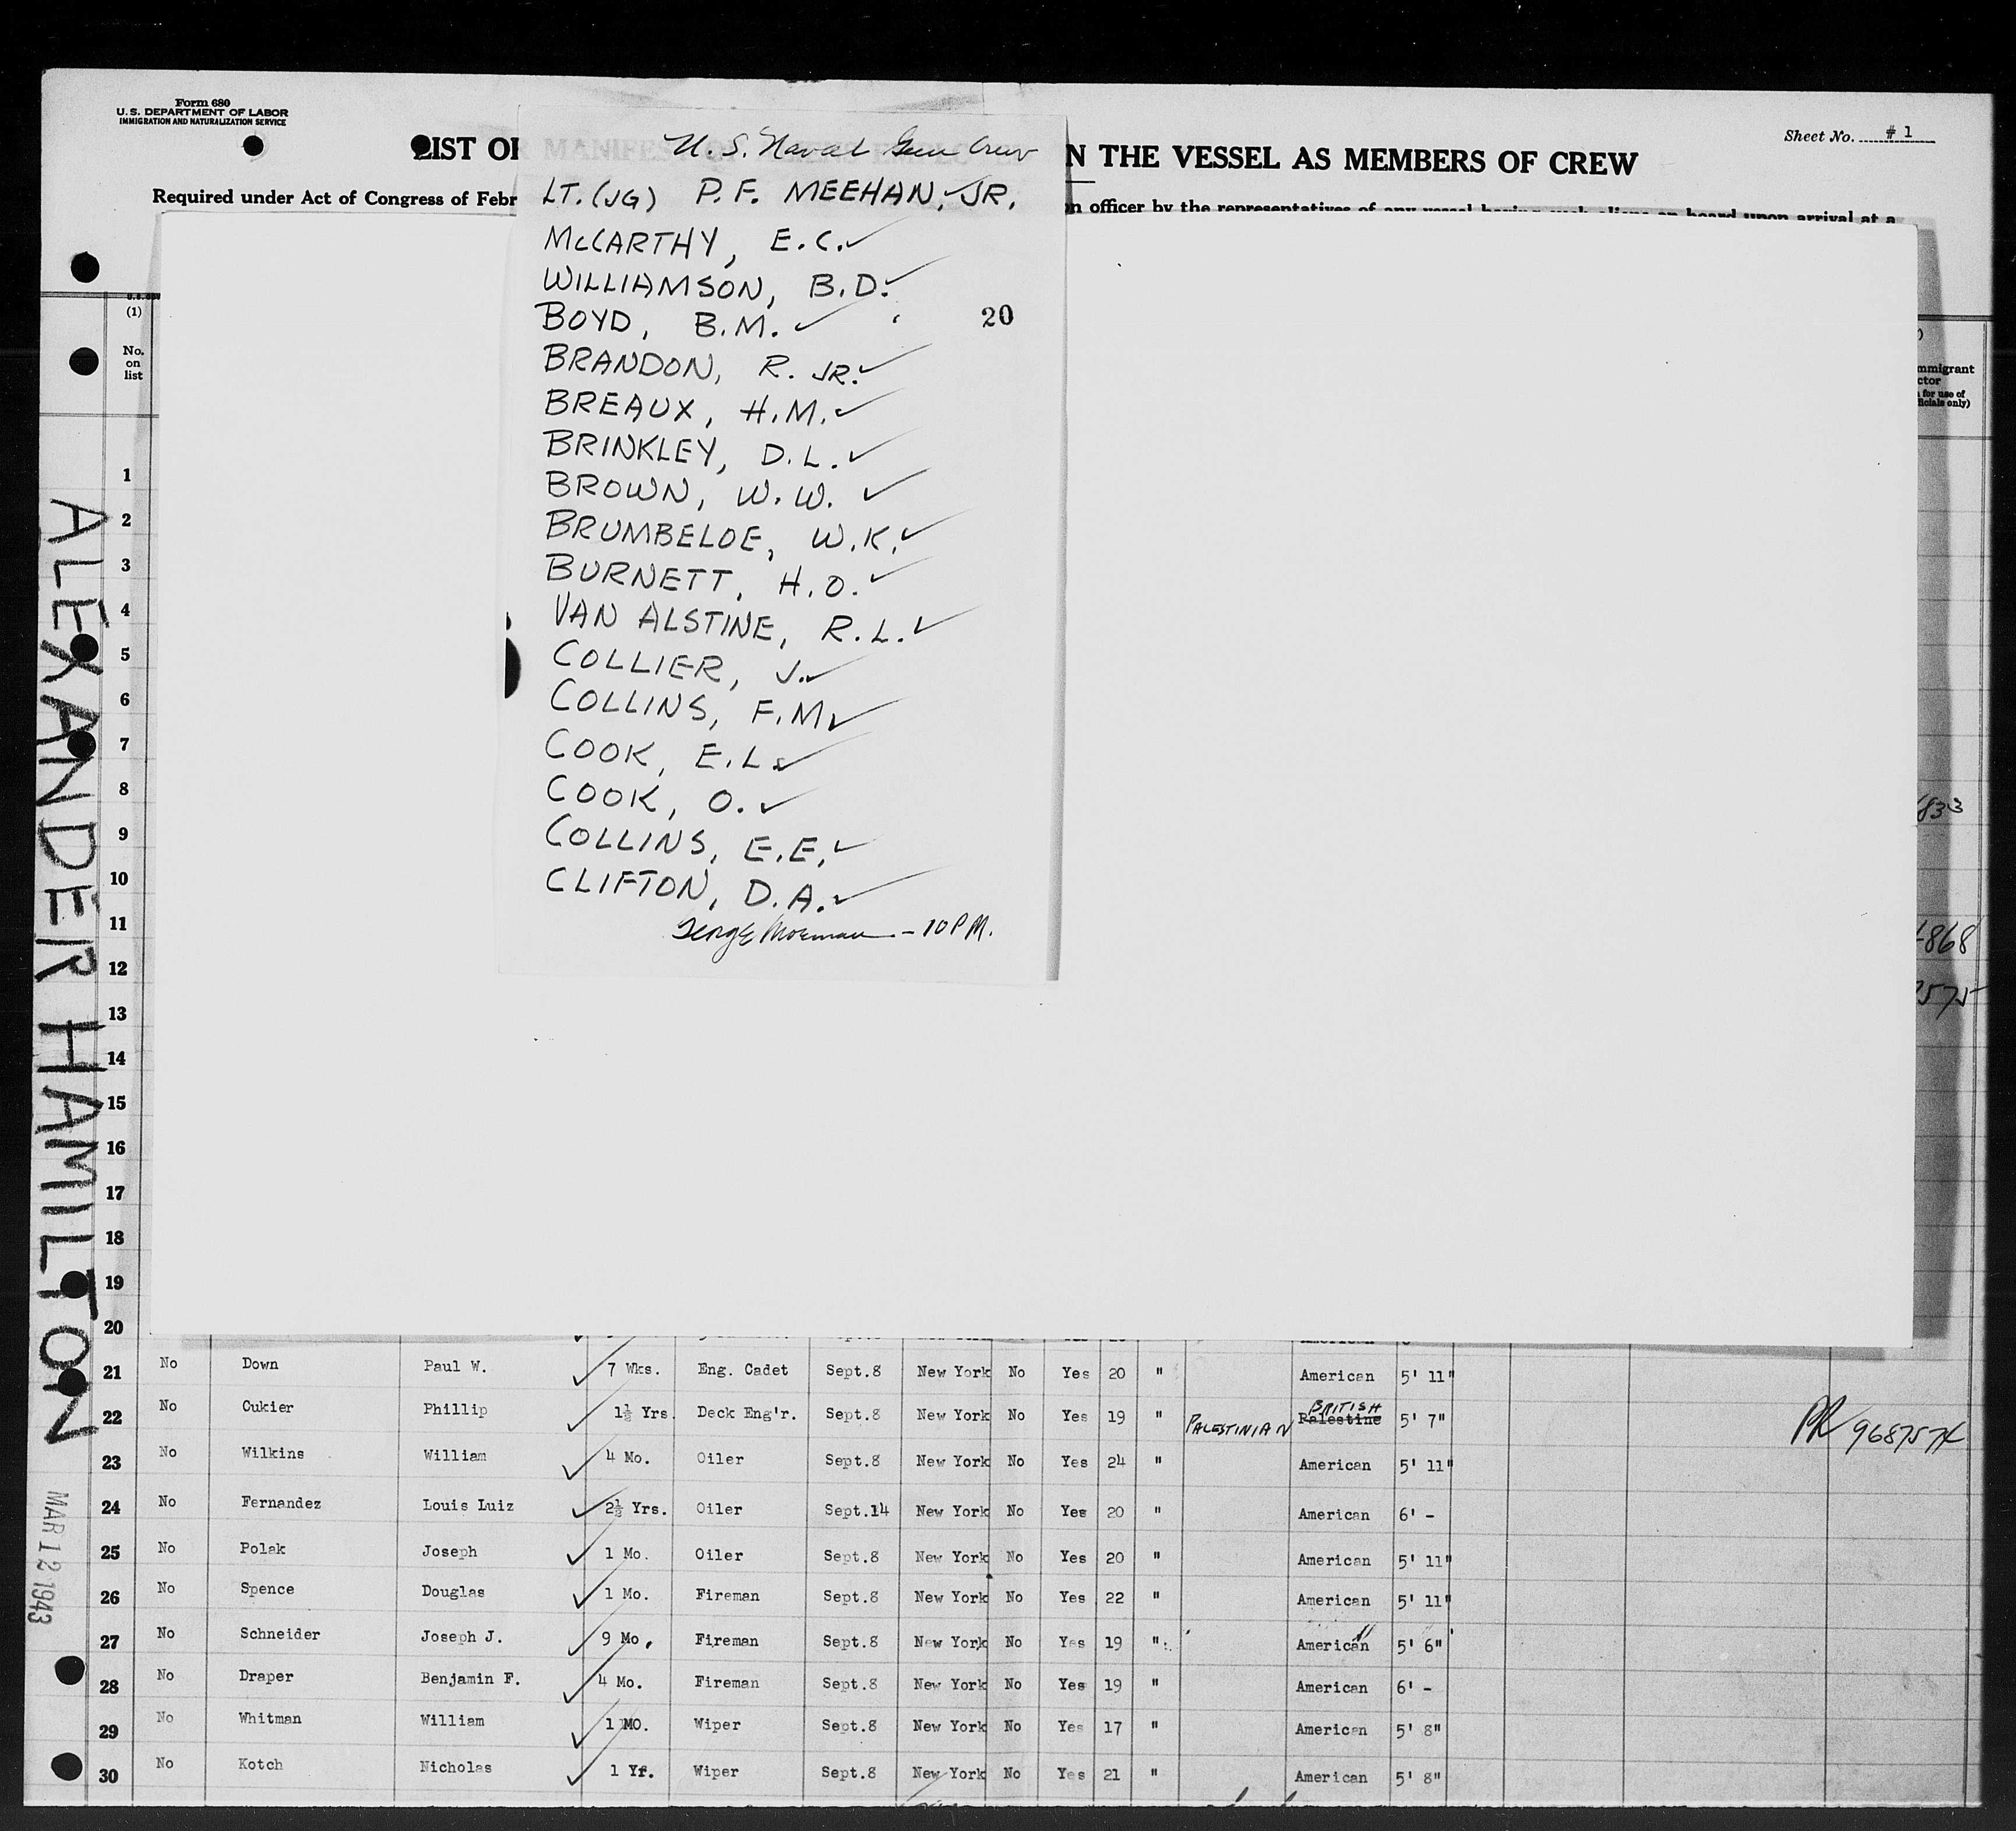 Form 680
U.S. DEPARTMENT OF LABOR
IMMIGRATION AND NATURALIZATION SERVICE
Sheet No. #1
LIST OR MANIFES N THE VESSEL AS MEMBERS OF CREW
Required under Act of Congress of Febr n officer by the representatives of any vessel having such aliens on board upon arrival at a
U. S. Naval Gun Crew
LT. (JG) P. F. MEEHAN, JR.
McCARTHY, E. C.
WILLIAMSON, B. D.
BOYD, B. M.
20
BRANDON, R. JR.
BREAUX, H. M.
BRINKLEY, D. L.
BROWN, W. W.
BRUMBELOE, W. K.
BURNETT, H. O.
VAN ALSTINE, R. L.
COLLIER, J.
COLLINS, F. M
COOK, E. L.
COOK, O.
COLLINS, E. E.
CLIFTON, D. A.
– 10 PM.
(1)
No. on list
mmigrant
ctor
for use of
ficials only)
833
868
575
ALEXANDER HAMILTON
MAR 12 1943
1
2
3
4
5
6
7
8
9
10
11
12
13
14
15
16
17
18
19
20
21 No Down Paul W. 7 Wks. Eng. Cadet Sept.8 New York No Yes 20 " American 5' 11"
22 No Cukier Phillip 1½ Yrs. Deck Eng'r. Sept.8 New York No Yes 19 " PALESTINIAN BRITISH Palestine 5' 7" PR 968757
23 No Wilkins William 4 Mo. Oiler Sept.8 New York No Yes 24 " American 5' 11"
24 No Fernandez Louis Luiz 2½ Yrs. Oiler Sept.14 New York No Yes 20 " American 6' -
25 No Polak Joseph 1 Mo. Oiler Sept.8 New York No Yes 20 " American 5' 11"
26 No Spence Douglas 1 Mo. Fireman Sept.8 New York No Yes 22 " American 5' 11"
27 No Schneider Joseph J. 9 Mo. Fireman Sept.8 New York No Yes 19 " American 5' 6"
28 No Draper Benjamin F. 4 Mo. Fireman Sept.8 New York No Yes 19 " American 6' -
29 No Whitman William 1 MO. Wiper Sept.8 New York No Yes 17 " American 5' 8"
30 No Kotch Nicholas 1 Yr. Wiper Sept.8 New York No Yes 21 " American 5' 8"